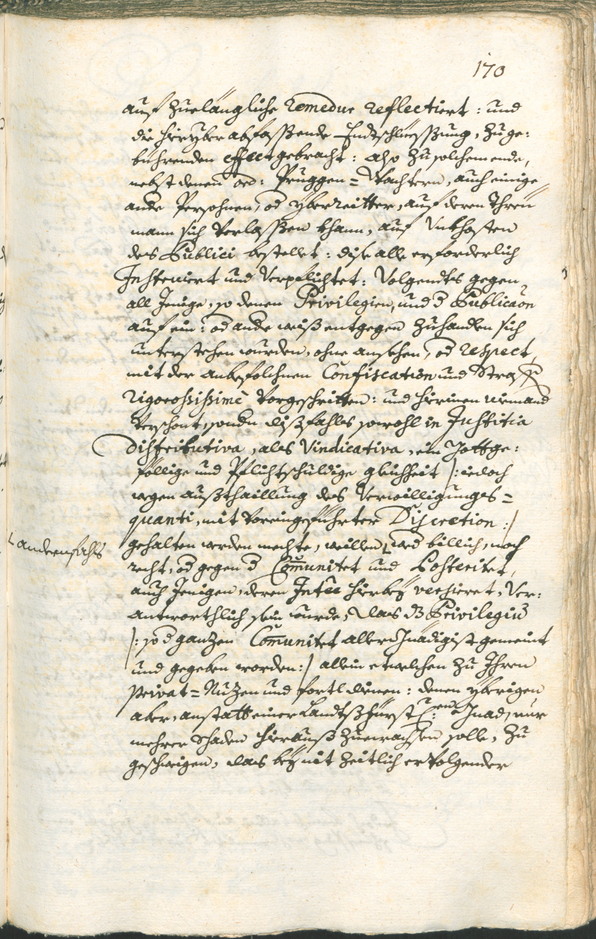 170
auf zuelängliche remedur reflectiert: und
die hierüber abfassende Entschliessung, zuge-
bührenden effect gebracht: also zu solchem ende,
nebst denen ord: Pruggen- Wachtern, auch einige
ande Persohnen, od yberreitter, auf deren Threu
mann sich verlassen khann, auf Unkhosten
des Publici bestellet: dise alle erforderlich
Instruiert und verpflichtet: Volgendts gegen
all Jenige, so denen Privilegien, und d Publicaõn
auf ein: od ande weiß entgegen zuhandlen sich
unterstehen wurden, ohne ansehen, od respect,
mit der anbefolchnen Confiscation und Straff
rigorosissimè vorgeschritten: und hierinen niemand
verschont, sonden dißfahls sowohl in Justitia
Distributiva, als Vindicativa, ein Gottge-
föllige und Pflichtschuldige gleichheit /: iedoch
wegen außthaillung des Verwilligungs-
quanti, mit Vorangeführter Discretion :/
gehalten werden mechte, weillen wed billich, noch
Landrenfahls
recht, od gegen d Com̃unitet und Posteritet,
auch Jenigen, deren Inteẽ hierbey versiert, Ver-
antworthlich sein wurde, das dß Privilegiũ
/: so d ganzen Com̃unitet aller Gnädigist gemeint
und gegeben worden :/ allein etwelchen zu Ihren
Privat-Nutzen und fortl dienen: denen yberigen
aber, anstatt einer Landtsfürstl: Gnad, nur
mehrer schaden hierauß zuwaxsen solle, zu
geschweigen, das bey mit Zeitlich erfolgender